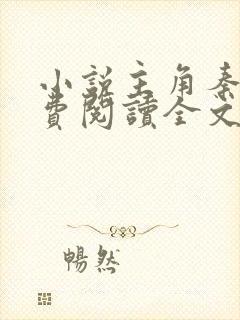 小說主角秦
費閱讀全文
暢然